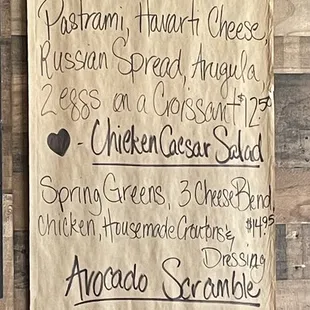 Pastrami, Havarti Cheese,
Russian Spread, Arugula,
2 eggs on a Croissant $12.50
- Chicken Caesar Salad
Spring Greens, 3 Cheese Blend,
Chicken, Housemade Croutons & $14.95
Dressing
Avocado Scramble